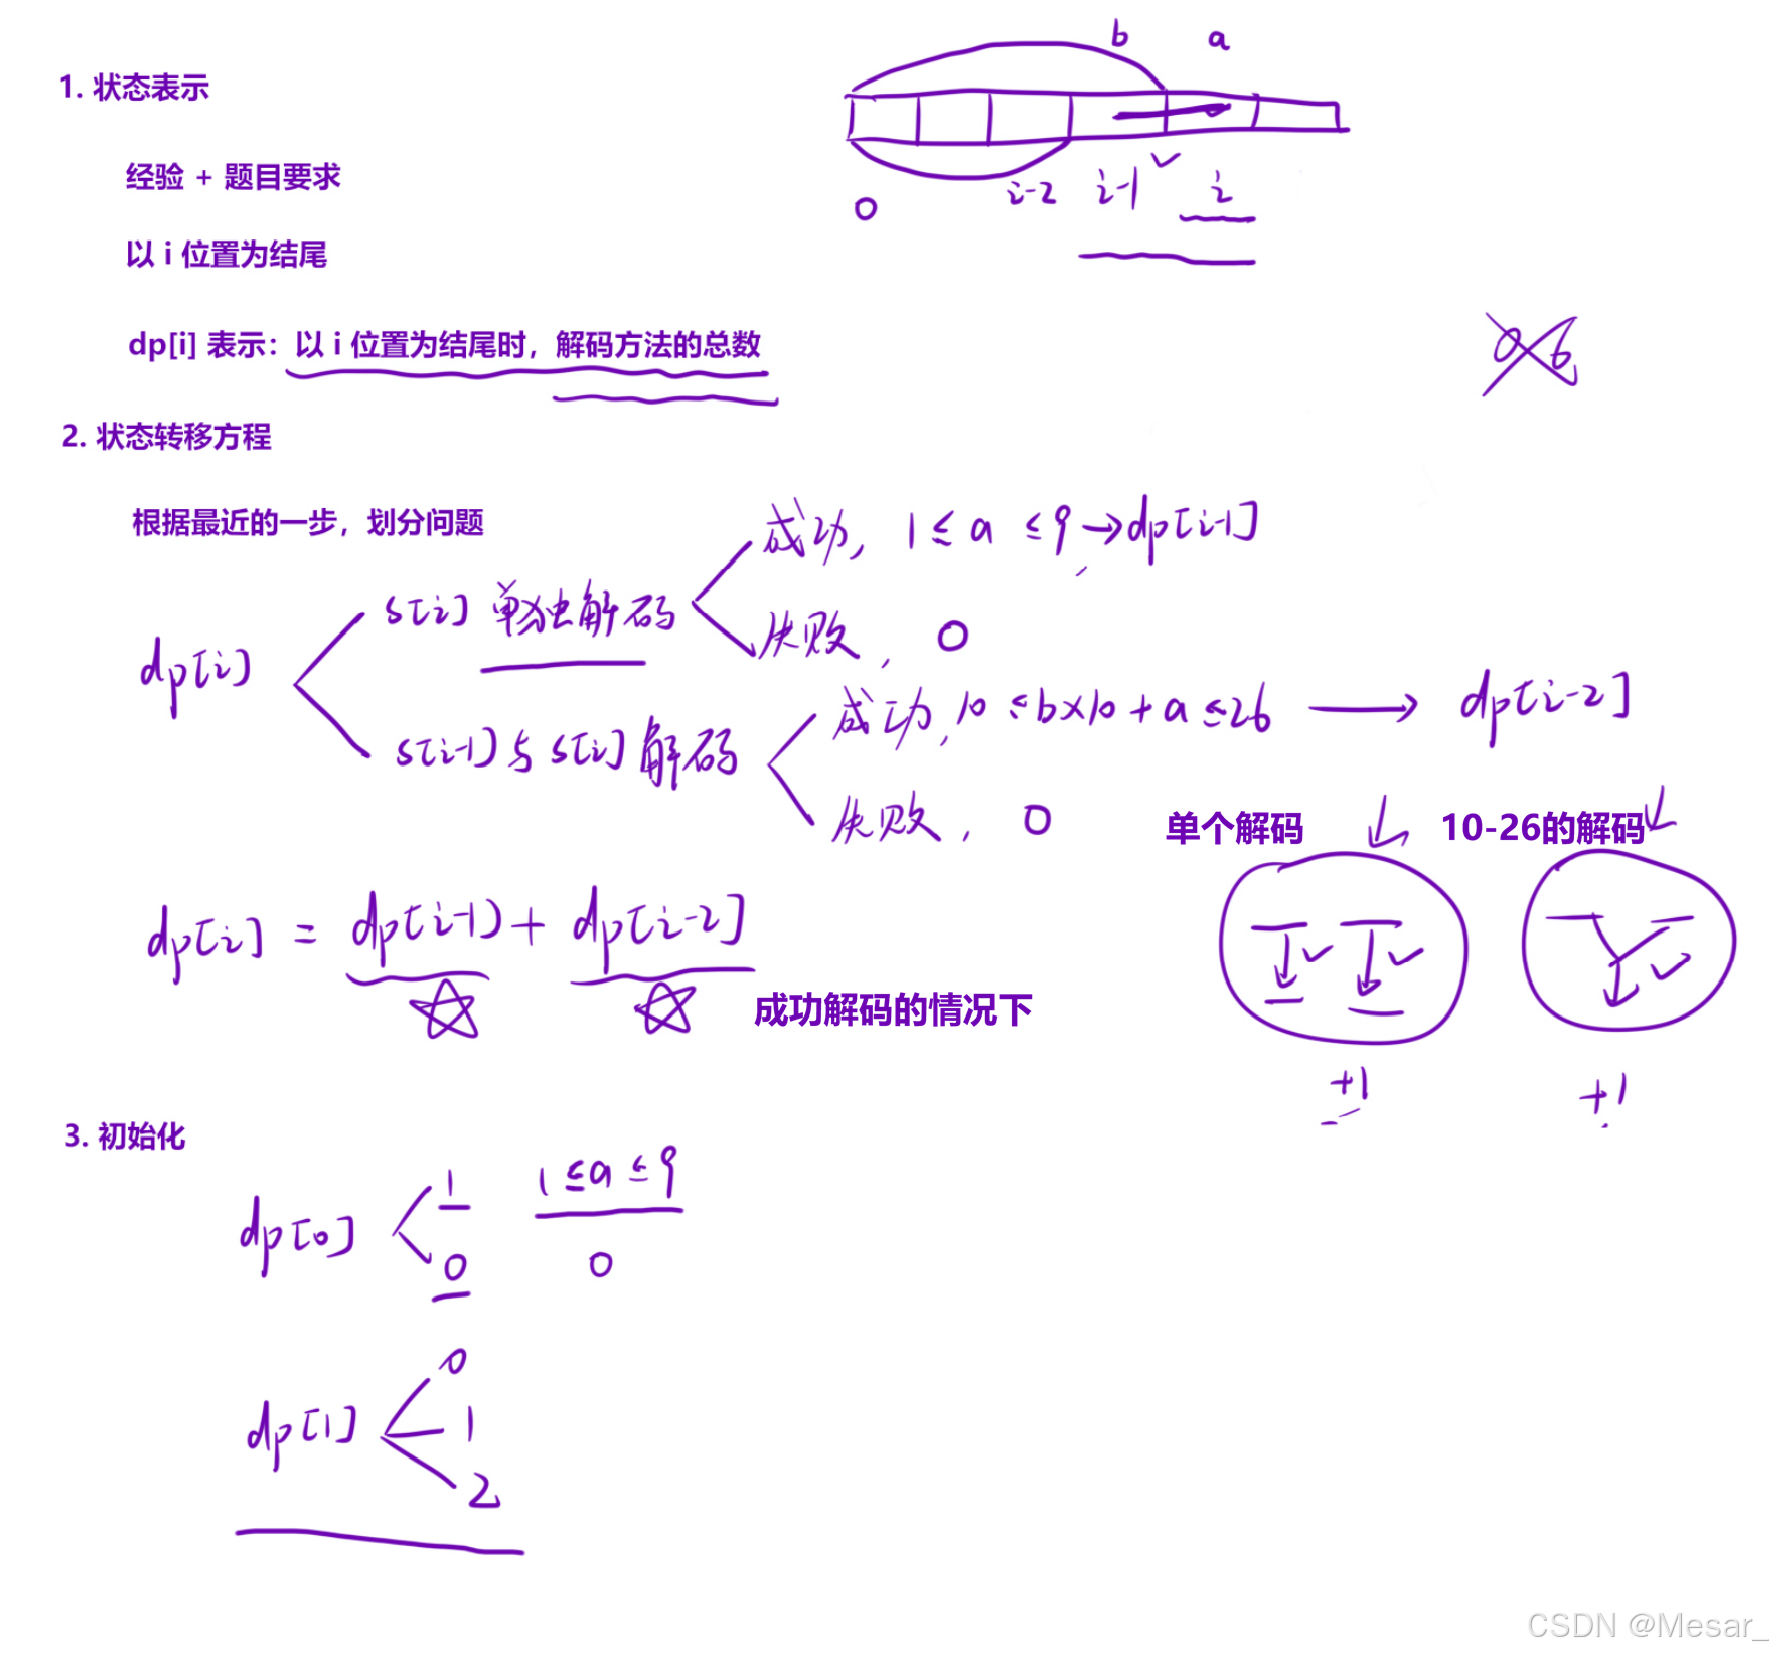 b a
1. 状态表示
经验 + 题目要求
i-2 i-1 i
0
以 i 位置为结尾
dp[i] 表示：以 i 位置为结尾时，解码方法的总数
06
2. 状态转移方程
根据最近的一步，划分问题
成功, 1 ≤ a ≤ 9 → dp[i-1]
s[i] 单独解码
失败, 0
dp[i]
成功, 10 ≤ b×10 + a ≤ 26 → dp[i-2]
s[i-1] 与 s[i] 解码
失败, 0
单个解码 10-26的解码
dp[i] = dp[i-1] + dp[i-2]
成功解码的情况下
+1 +1
3. 初始化
1 1 ≤ a ≤ 9
dp[0]
0 0
0
dp[1] 1
2
CSDN @Mesar_